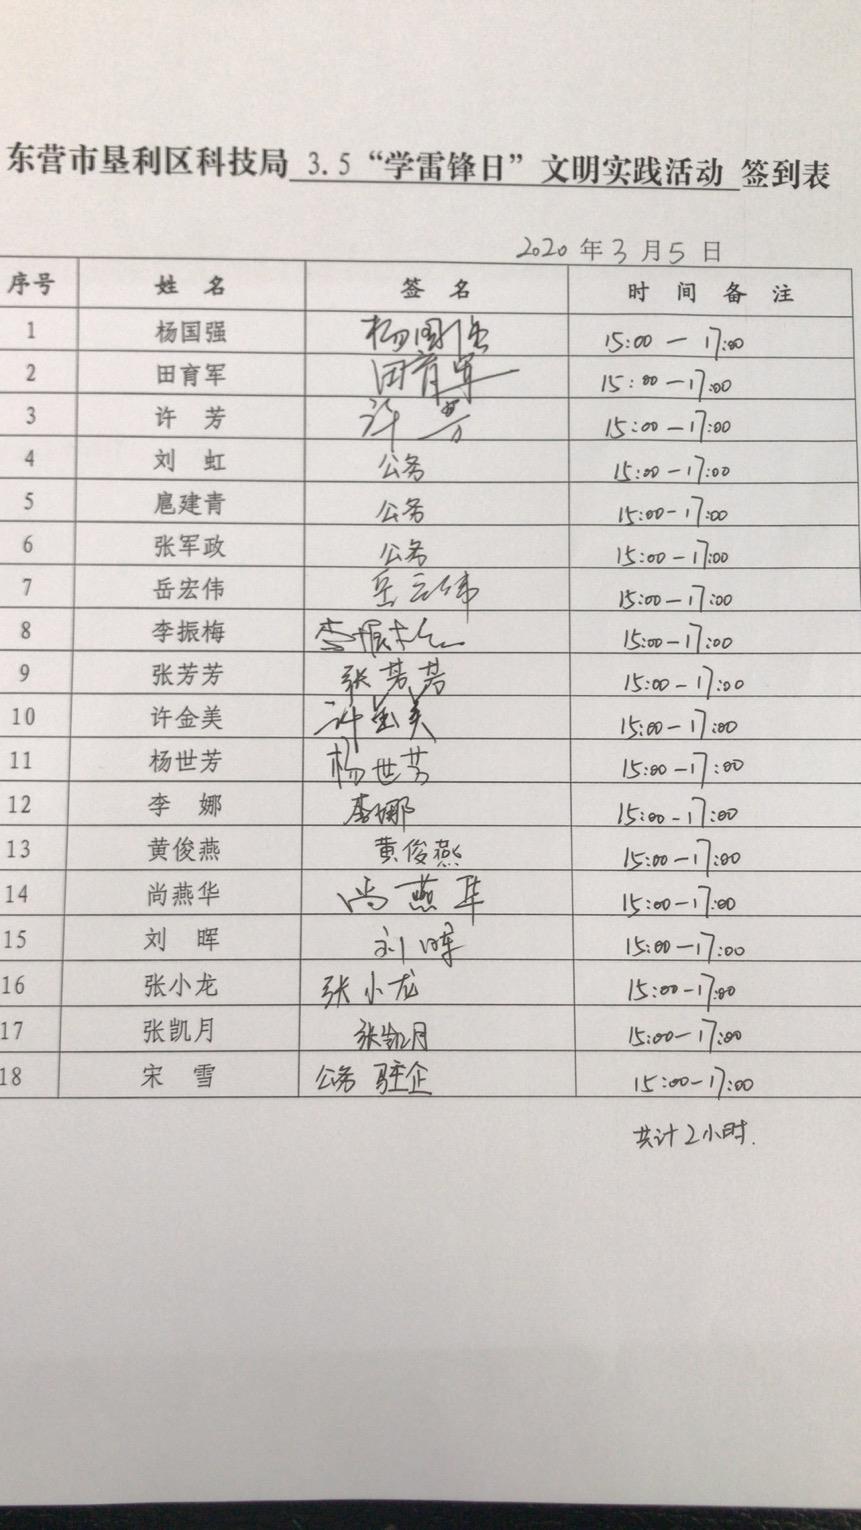 东营市垦利区科技局 3.5“学雷锋日”文明实践活动 签到表
2020 年 3 月 5 日
序号 姓 名 签 名 时 间 备 注
1 杨国强 杨国强 15:00 — 17:00
2 田育军 田育军 15:00 — 17:00
3 许 芳 许芳 15:00 — 17:00
4 刘 虹 公务 15:00 — 17:00
5 扈建青 公务 15:00 — 17:00
6 张军政 公务 15:00 — 17:00
7 岳宏伟 岳宏伟 15:00 — 17:00
8 李振梅 李振梅 15:00 — 17:00
9 张芳芳 张芳芳 15:00 — 17:00
10 许金美 许金美 15:00 — 17:00
11 杨世芳 杨世芳 15:00 — 17:00
12 李 娜 李娜 15:00 — 17:00
13 黄俊燕 黄俊燕 15:00 — 17:00
14 尚燕华 尚燕华 15:00 — 17:00
15 刘 晖 刘晖 15:00 — 17:00
16 张小龙 张小龙 15:00 — 17:00
17 张凯月 张凯月 15:00 — 17:00
18 宋 雪 公务 驻企 15:00 — 17:00
共计2小时.